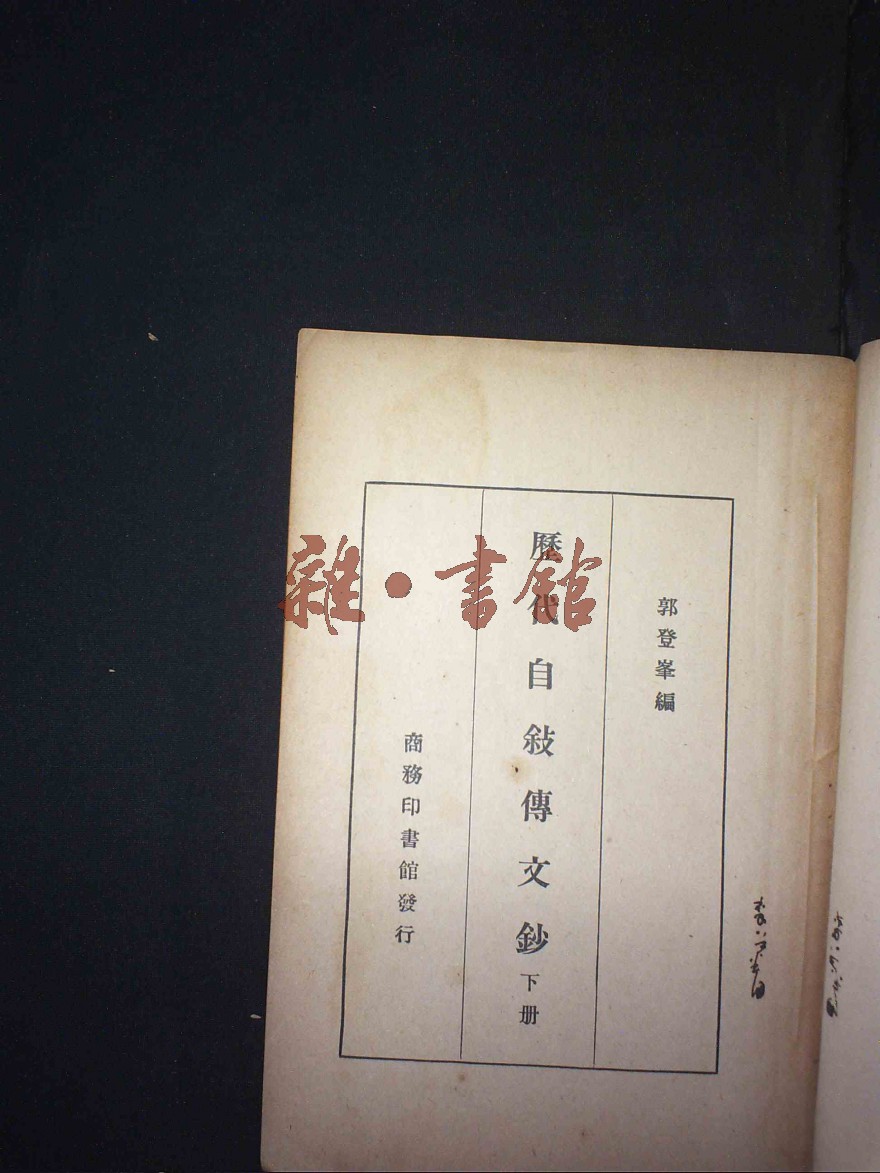 郭登峯編
歷代自敍傳文鈔 下册
商務印書館發行
雜·書館